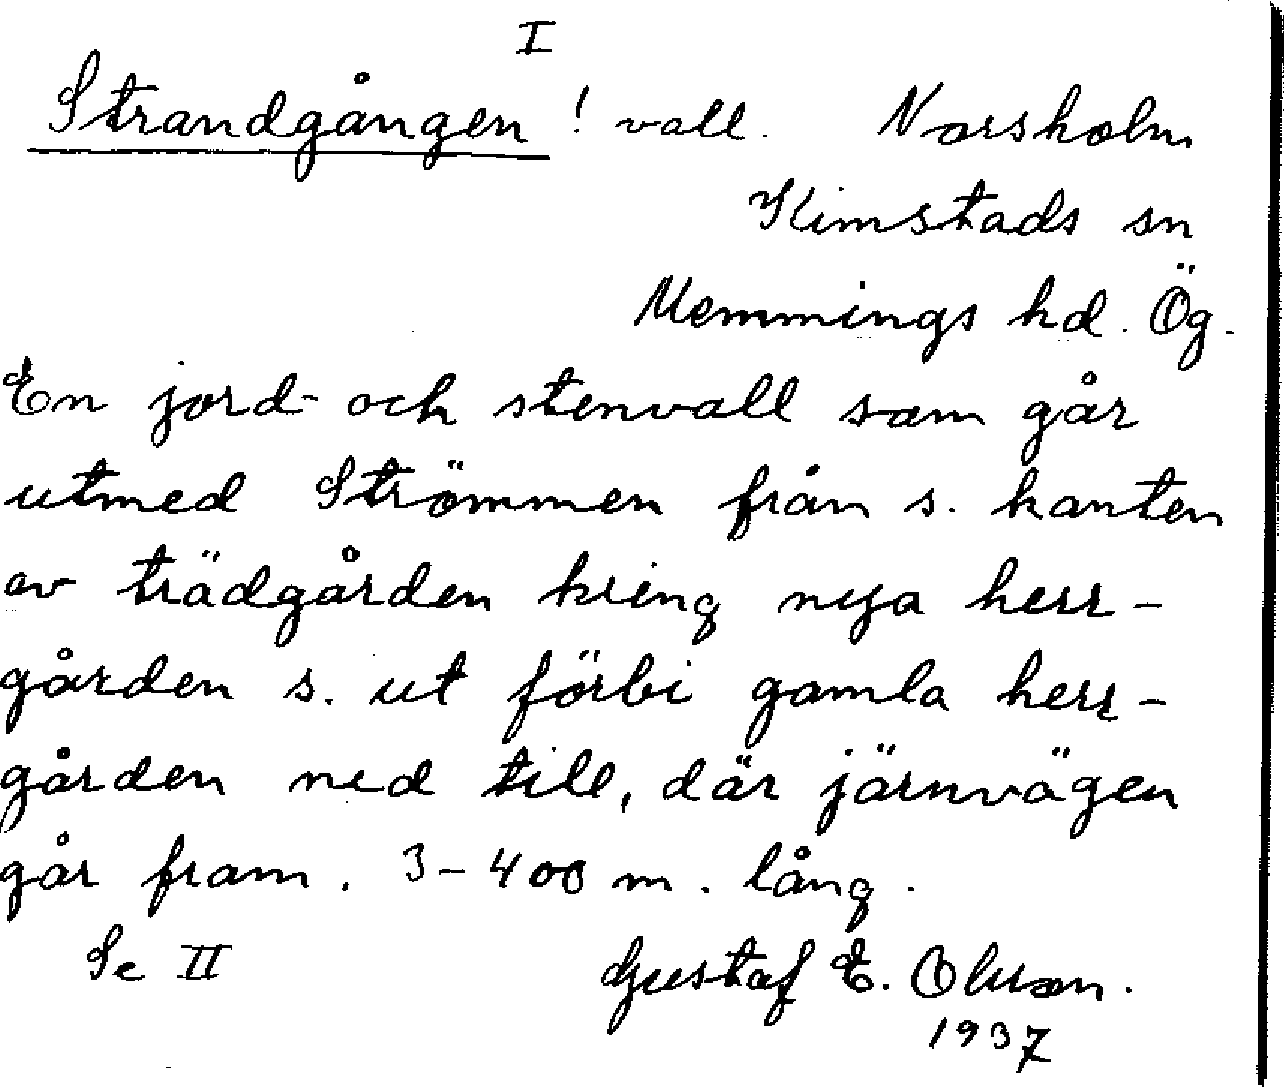 I
Strandgången ! vall. Norsholm
Kimstads sn
Memmings hd. Ög.
En jord- och stenvall som går
utmed Strömmen från s. kanten
av trädgården kring nya herr-
gården s. ut förbi gamla herr-
gården ned till, där järnvägen
går fram. 3-400 m. lång.
Se II Gustaf E. Olsson.
1937